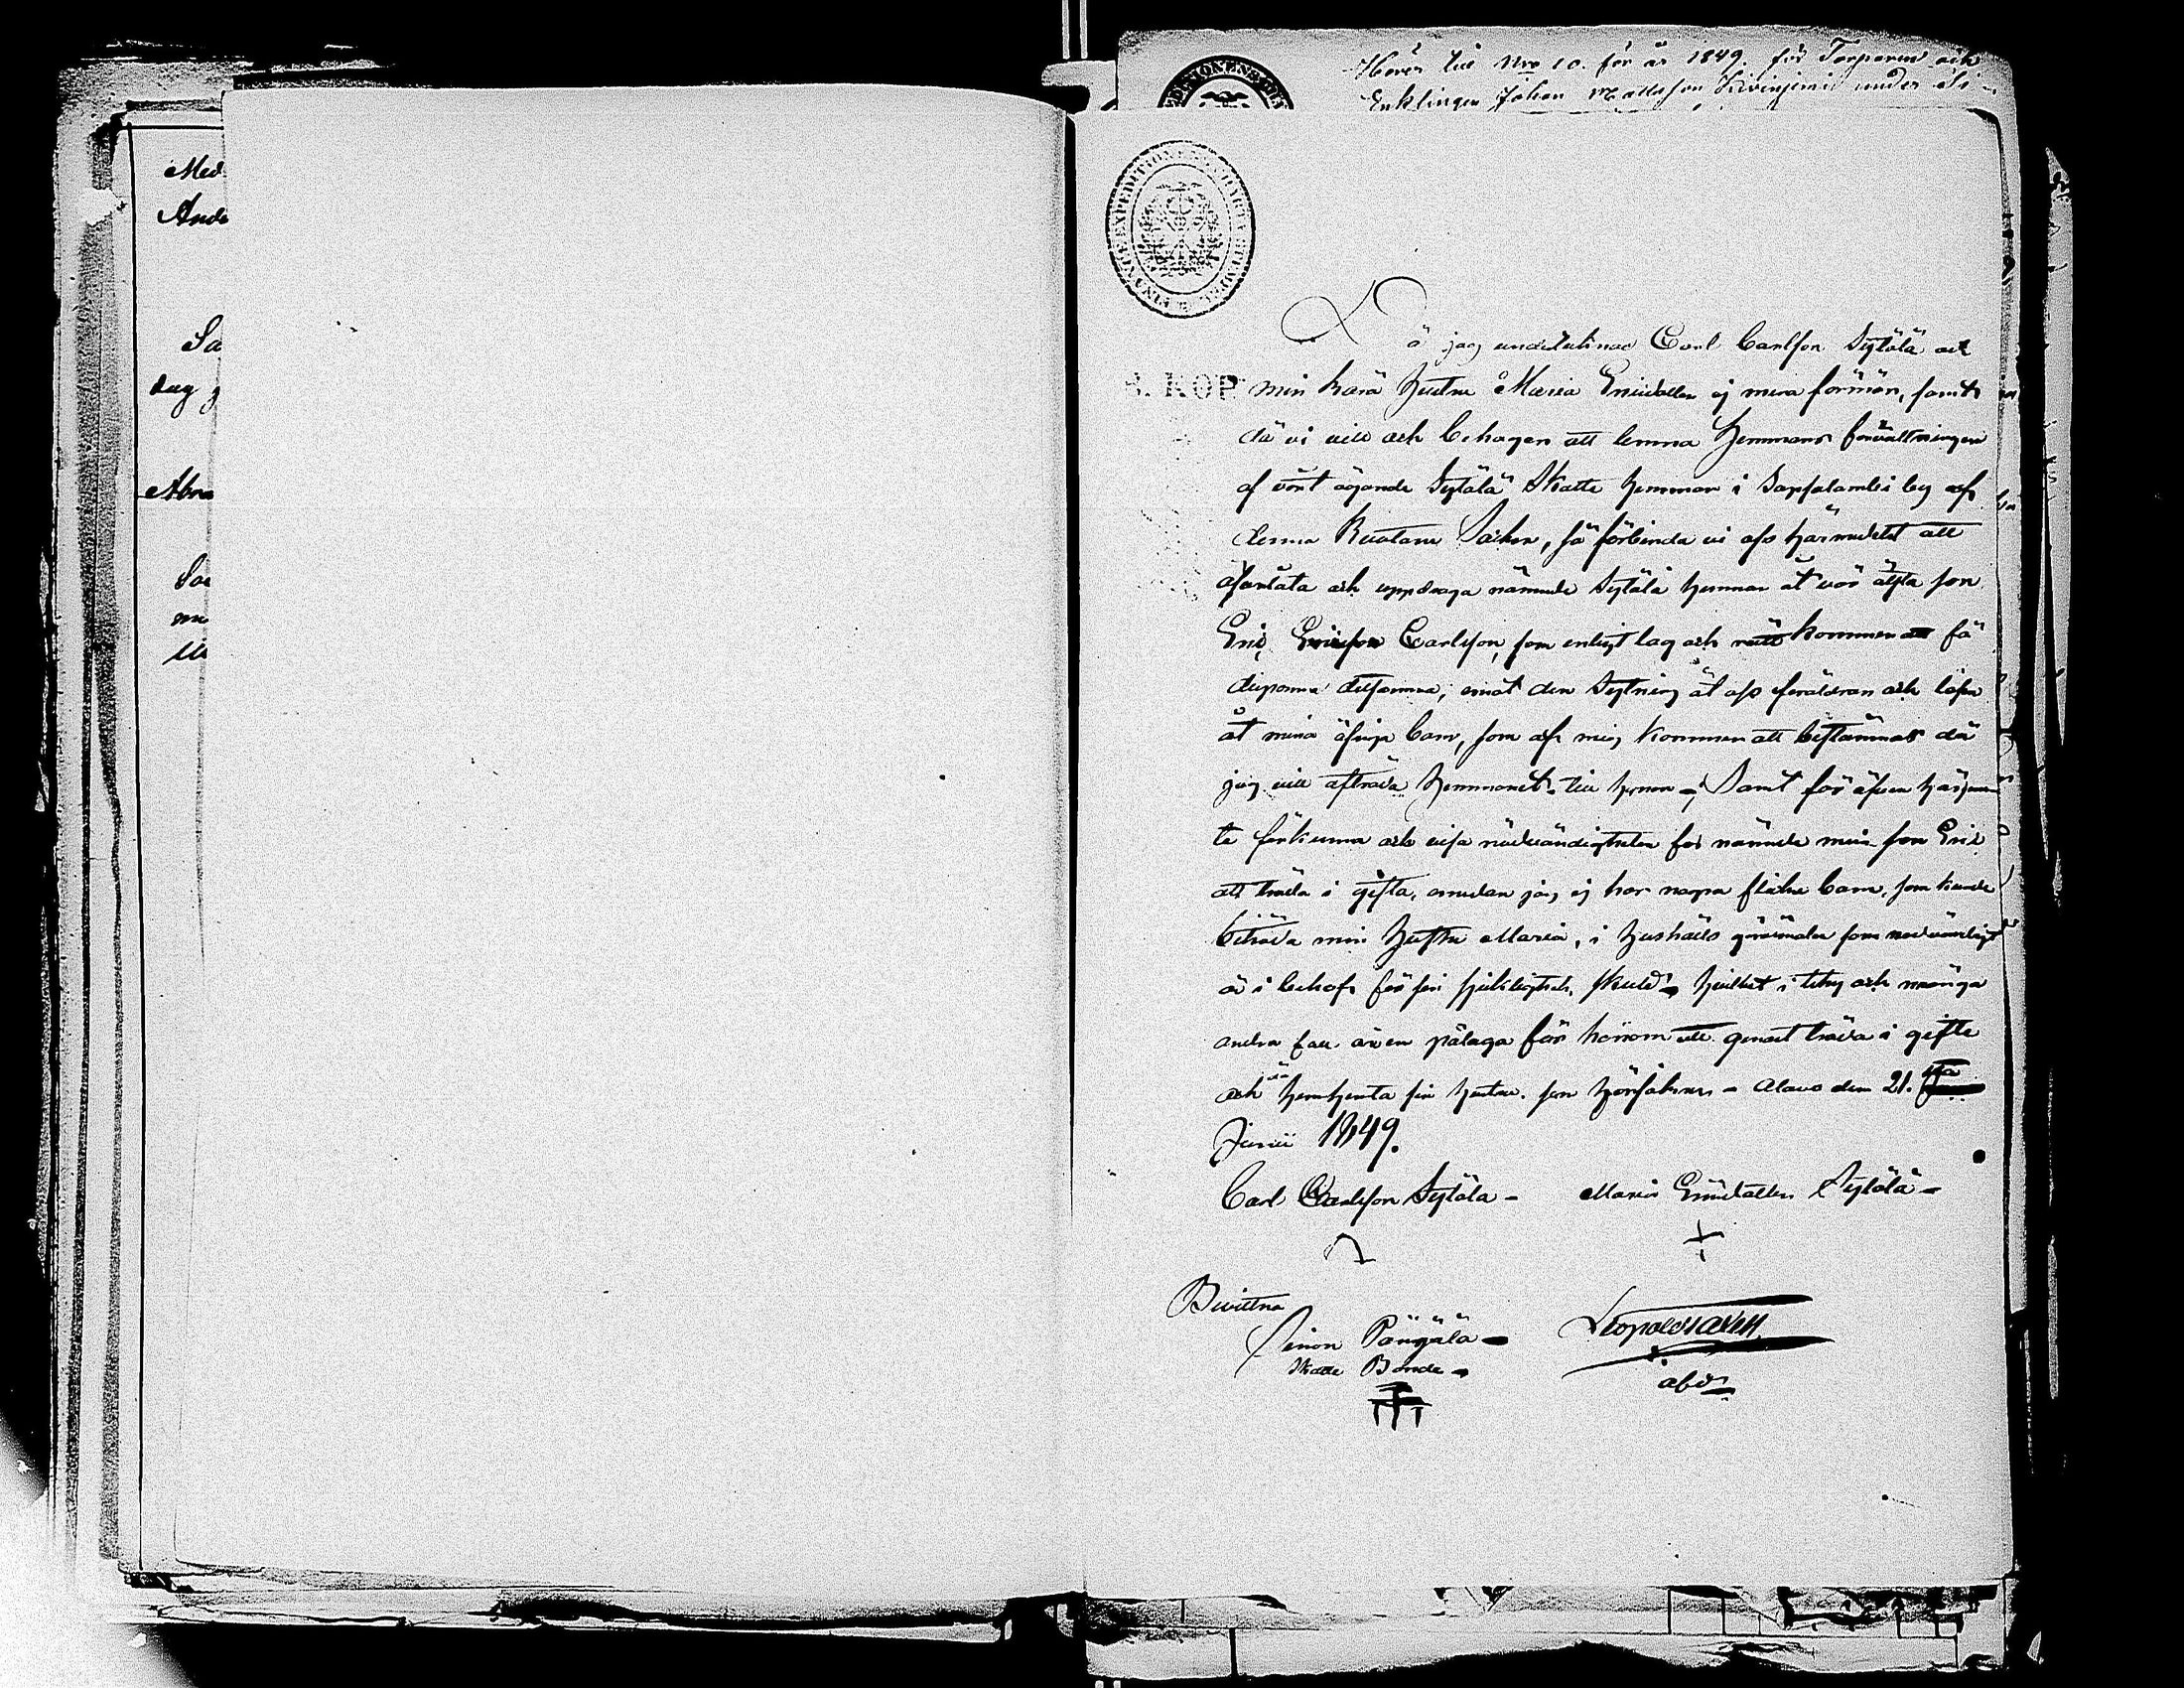 Med
Ande
Sa
dag
Abra
So
Hörer till Nro 10. för år 1849. för Torparen och
Enklingen Johan Mattsson Kivinjemi under
FINANCE EXPEDITIONENS CHARTÆ STEMPEL
Då jag undertecknad Carl Carlsson Sytälä och
KOP
min kära hustru Maria Ericsdotter ej mera förmår, samt
då vi vill och behagar att lemna Hemmans förvaltningen
af vårt ägande Sytälä Skatte hemman i Sapsalambi by af
denna Socken, så förbinda vi oss härmedelst att
afsträta och uppdraga nämnde Sytälä hemman åt vår älsta son
Eric, Carlsson, som enligt lag och rätt kommer att få
disponera detsamma, emot den Sytning åt oss föräldrar och lösen
åt mina öfriga barn, som af mig kommer att bestämmas då
jag vill afträda Hemmanet till honom - Samt får äfven härjem
te förkunna och visa nödvändigheten för nämnde min son Eric
att träda i gifte, emedan jag ej har några flicke barn, som kunde
biträda min hustru Maria, i hushålls göromåler som nödvändigt
är i behof för sin sjuklighets skuld - hvilket i ty och många
andra fall är en pålaga för honom att genast träda i gifte
och hemhemta sin hustru. som hörsammas - Alavo den 21. sta
Junii 1849.
Carl Carlsson Sytälä - Maria Ericsdotter Sytälä -
Bevittna
Simon Pängälä - Leopold
Skatte Bonde -